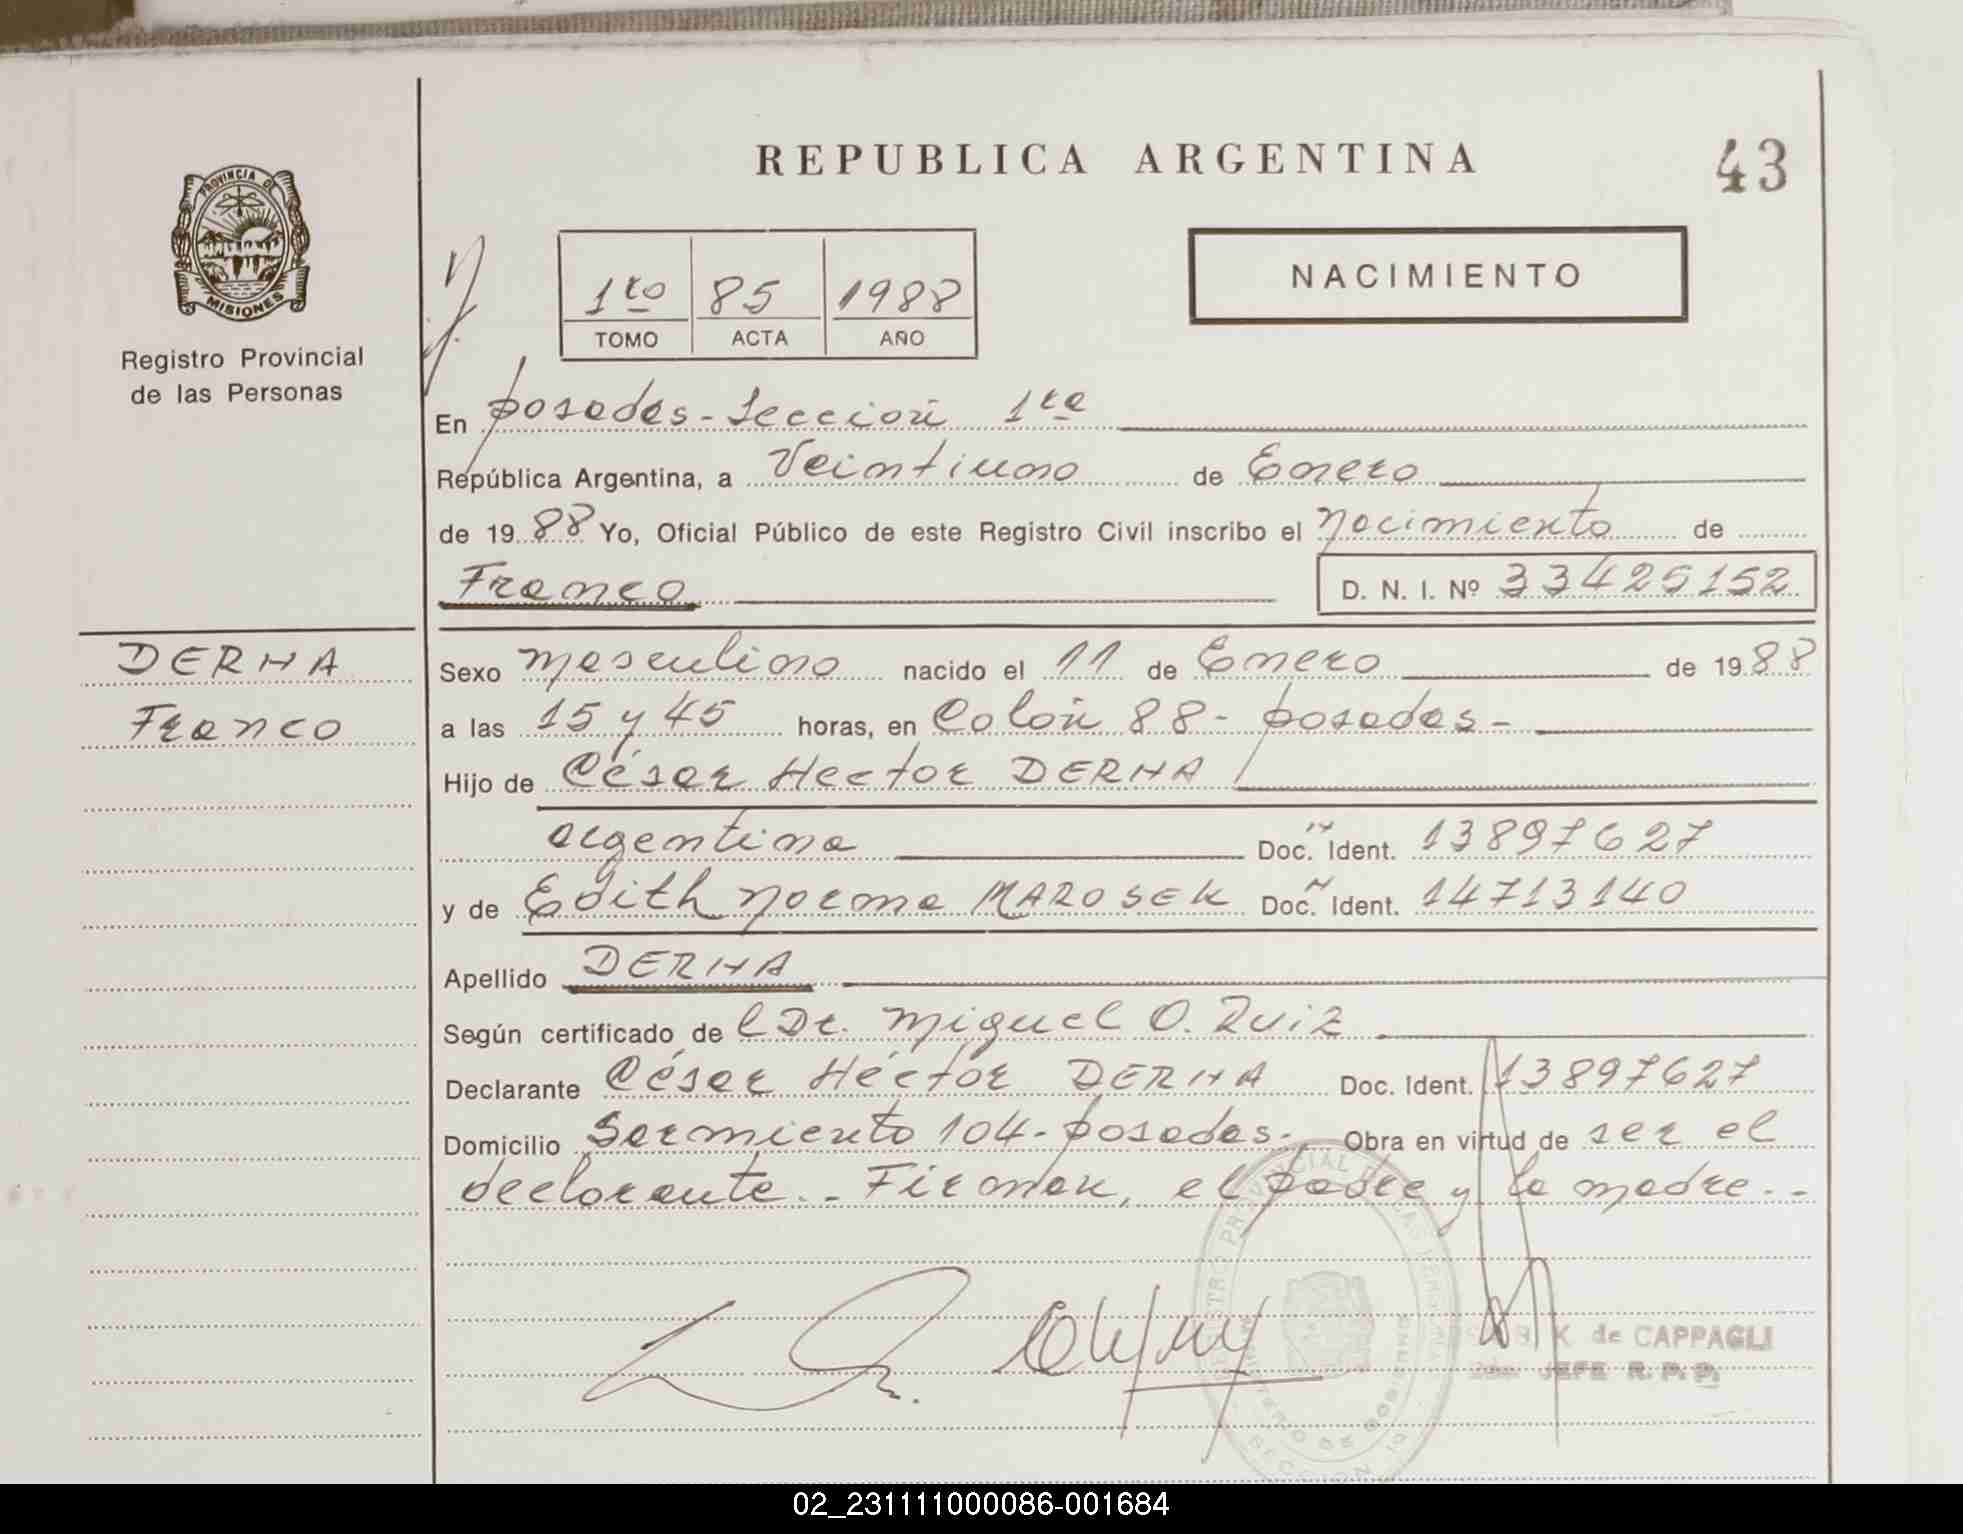 REPUBLICA ARGENTINA
43
PROVINCIA DE
MISIONES
Registro Provincial
de las Personas
1ro 85 1988
TOMO ACTA AÑO
NACIMIENTO
En Posadas - Sección 1ra
República Argentina, a Veintiuno de Enero
de 1988 Yo, Oficial Público de este Registro Civil inscribo el Nacimiento de
Franco D. N. I. Nº 33425152
DERHA
Franco
Sexo masculino nacido el 11 de Enero de 1988
a las 15 y 45 horas, en Colón 88 - Posadas -
Hijo de César Hector DERHA
argentina Doc. Ident. 13897627
y de Edith Norma MAROSEK Doc. Ident. 14713140
Apellido DERHA
Según certificado de l Dr. Miguel O. Ruiz
Declarante César Héctor DERHA Doc. Ident. 13897627
Domicilio Sarmiento 104 - Posadas - Obra en virtud de ser el
declarante. - Firman, el padre y la madre. -
de CAPPAGLI
JEFE R. P. P.
02_231111000086-001684